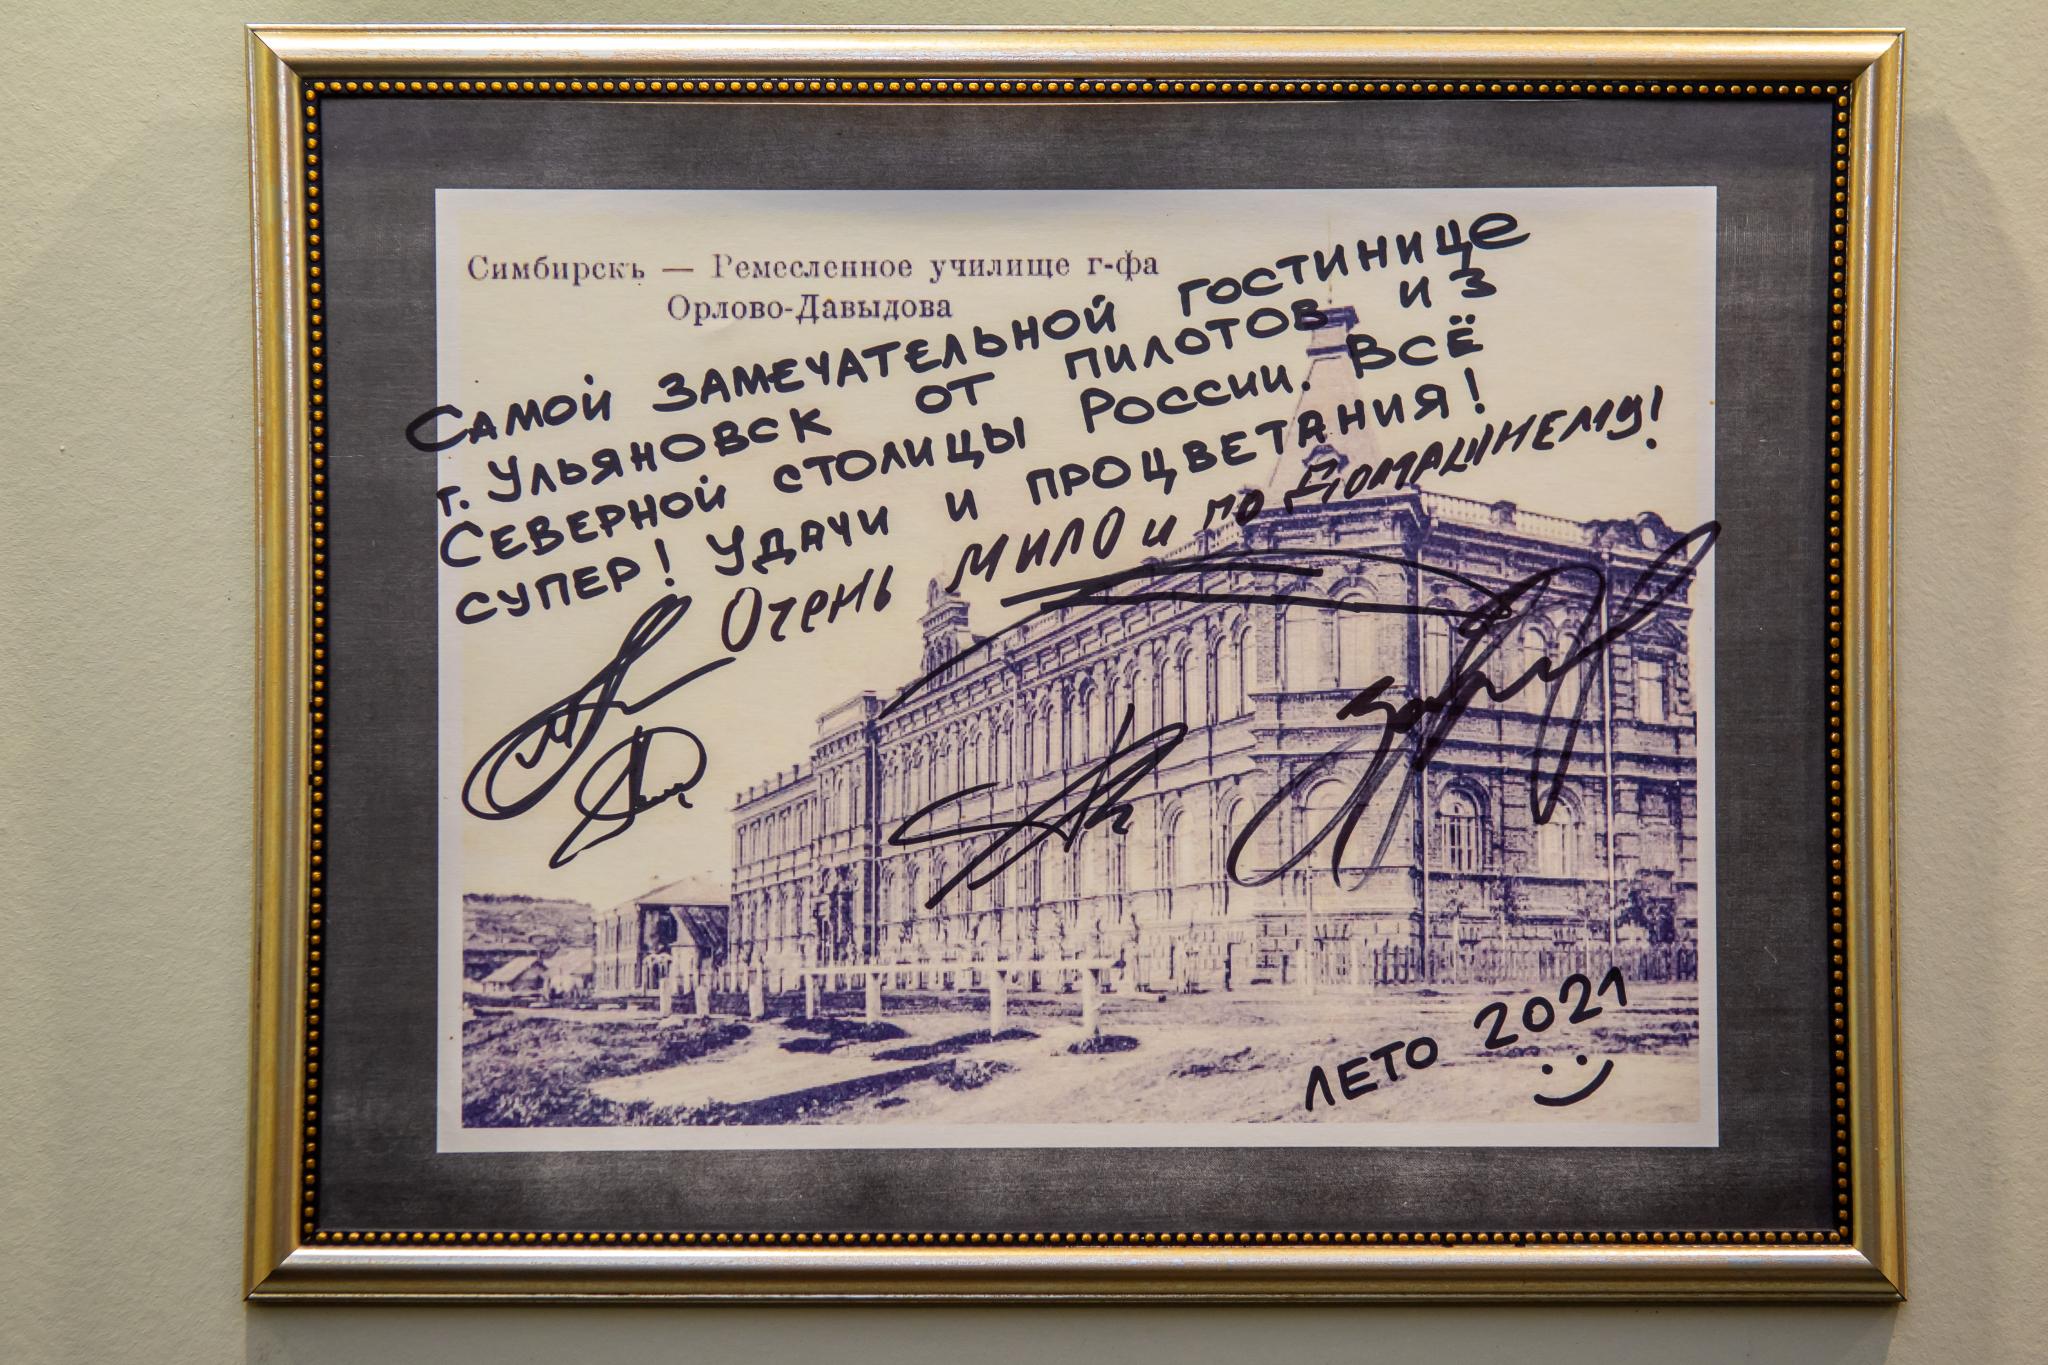 Симбирскъ — Ремесленное училище г-фа
Орлово-Давыдова
Самой замечательной гостинице
г. Ульяновск от пилотов из
Северной столицы России. Всё
супер! Удачи и процветания!
Очень мило и по домашнему!
Лето 2021